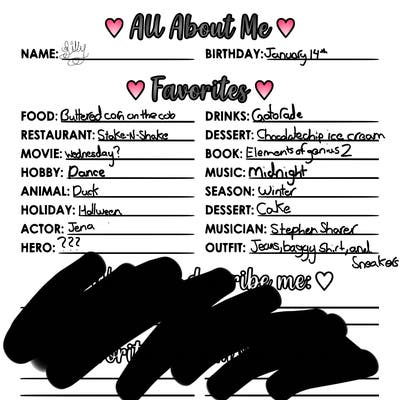 All About Me
NAME: Lilly BIRTHDAY: January 14th
Favorites
FOOD: Buttered corn on the cob DRINKS: Gatorade
RESTAURANT: Stake-N-Shake DESSERT: Chocolatechip ice cream
MOVIE: wednesday? BOOK: Elements of genius 2
HOBBY: Dance MUSIC: Midnight
ANIMAL: Duck SEASON: Winter
HOLIDAY: Hallween DESSERT: Cake
ACTOR: Jena MUSICIAN: Stephen Sharer
HERO: ??? OUTFIT: Jeans, baggy shirt, and
Sneakers
me: